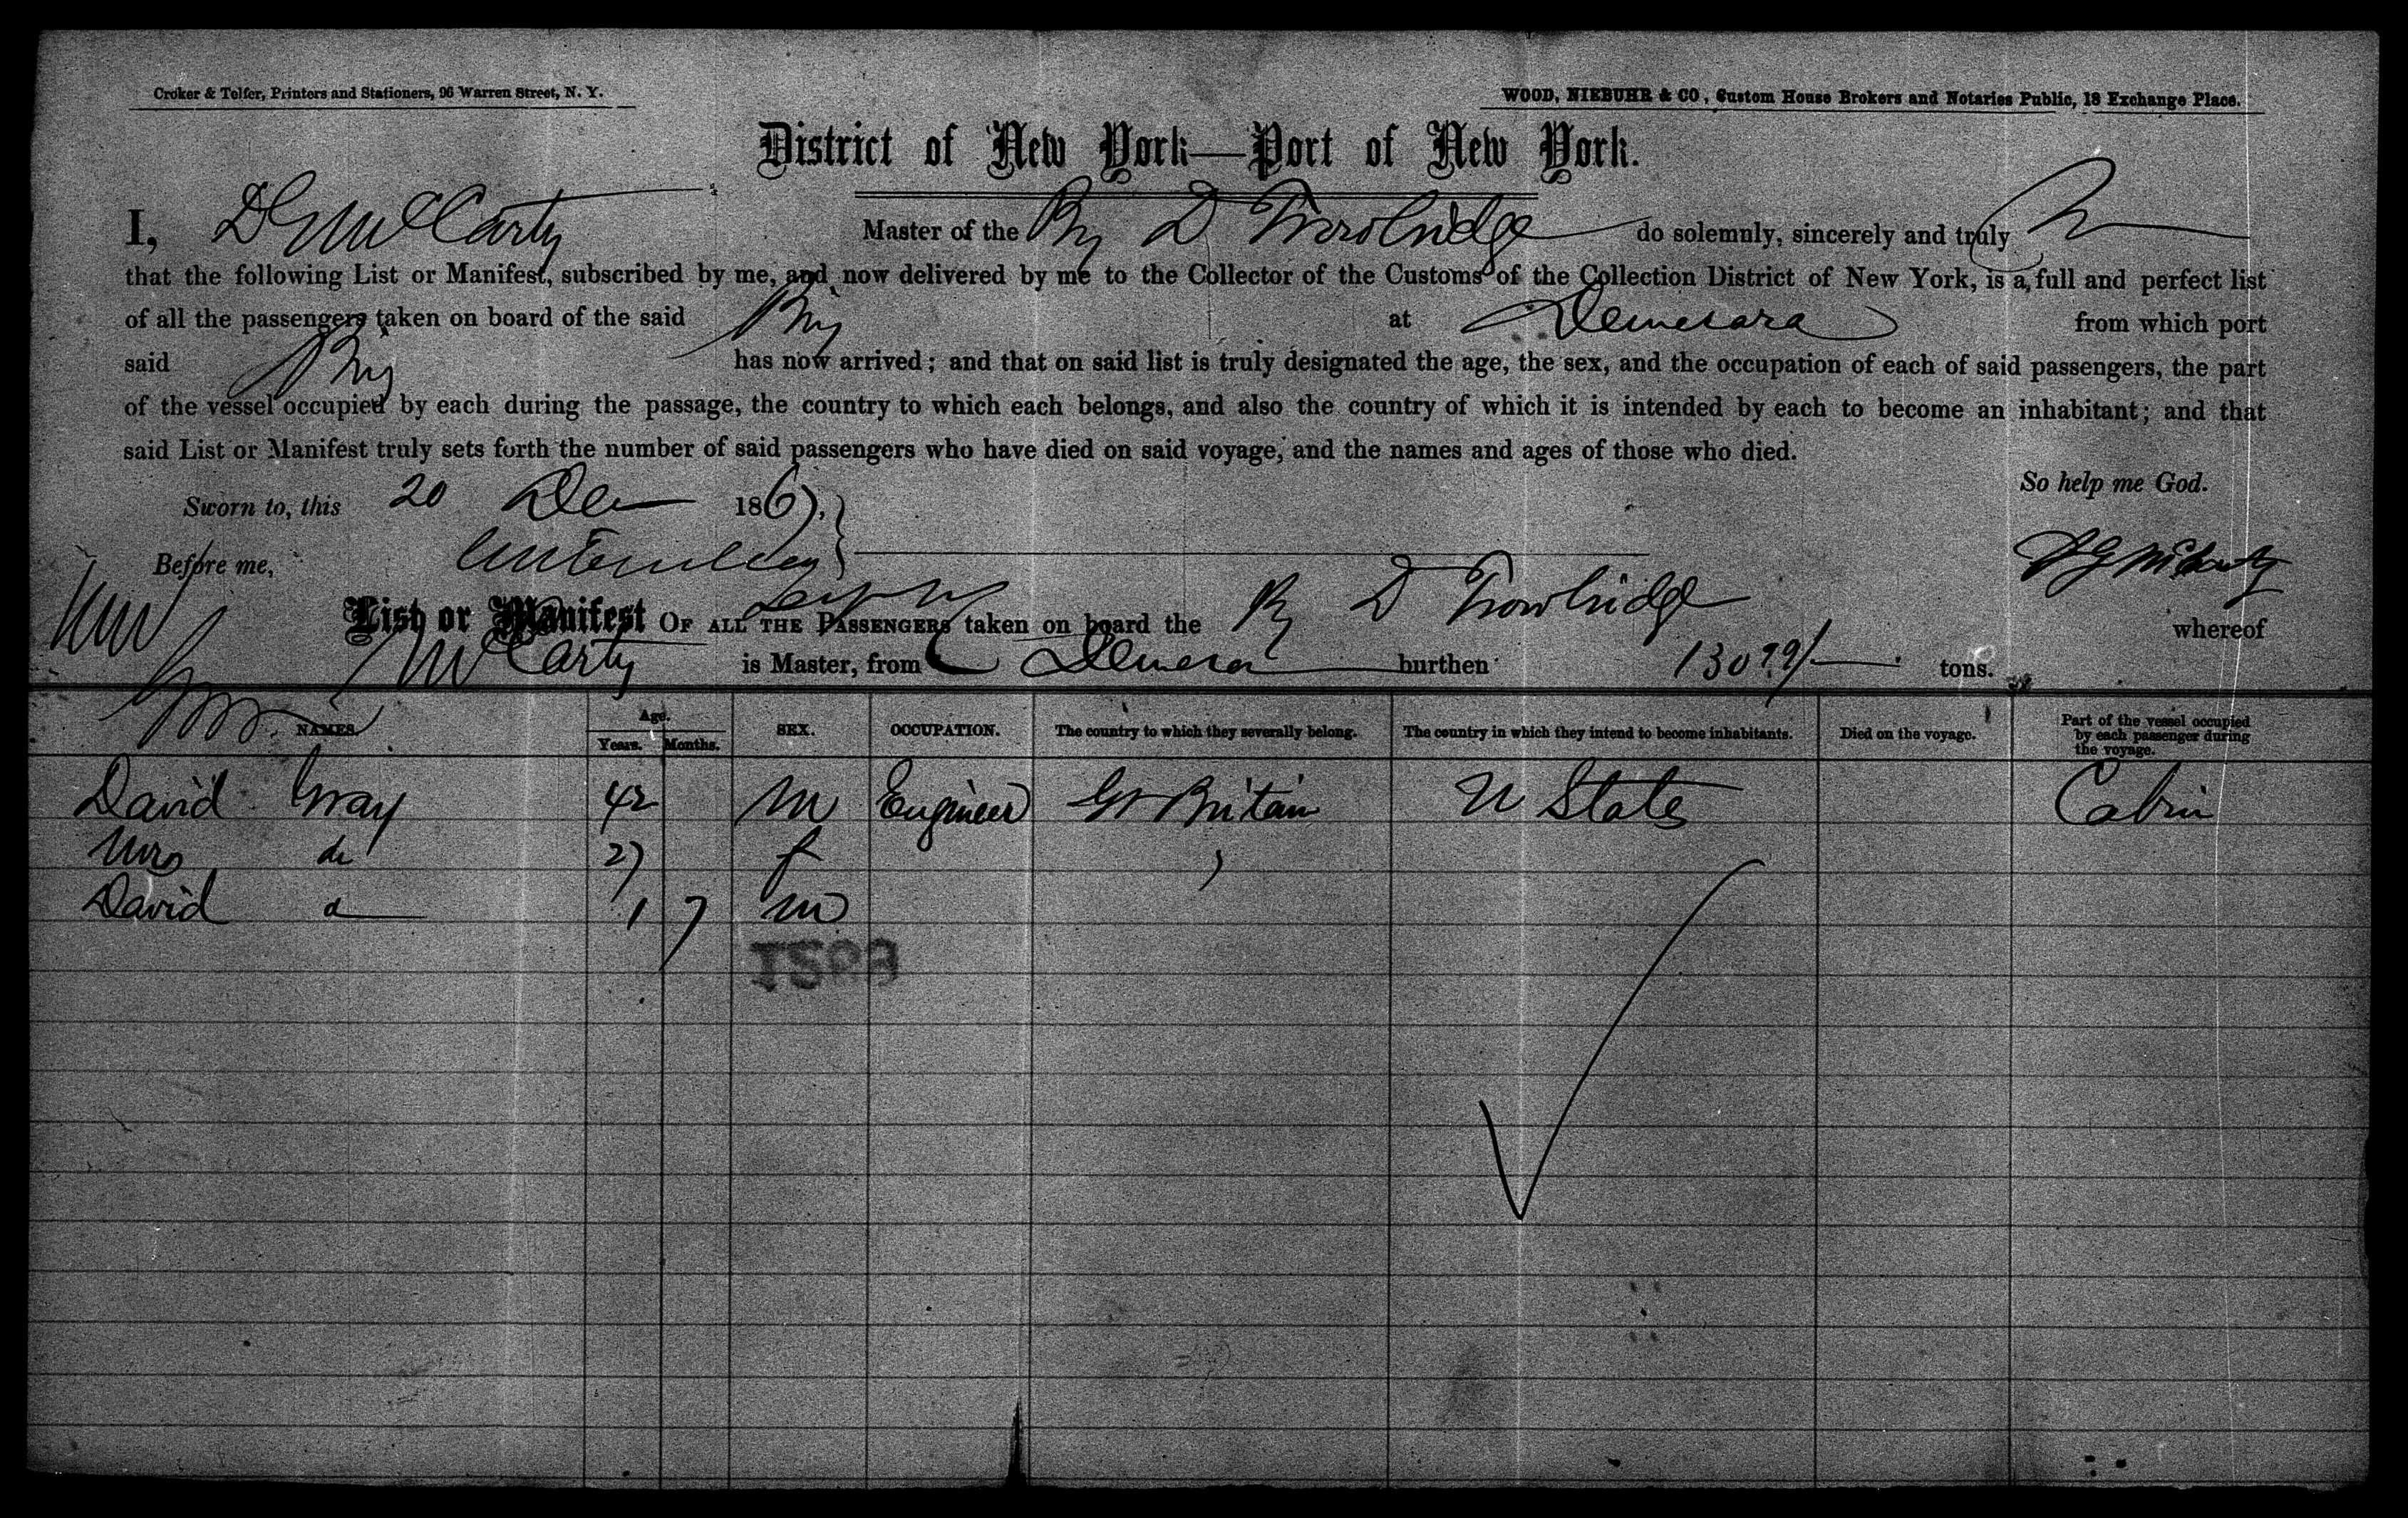 Croker & Telfer, Printers and Stationers, 96 Warren Street, N. Y.
WOOD, NIEBUHR & CO, Custom House Brokers and Notaries Public, 18 Exchange Place.
District of New York—Port of New York.
I, D G McCarty Master of the Brig D Trowbridge do solemnly, sincerely and truly
that the following List or Manifest, subscribed by me, and now delivered by me to the Collector of the Customs of the Collection District of New York, is a full and perfect list
of all the passengers taken on board of the said Brig at Demerara from which port
said Brig has now arrived; and that on said list is truly designated the age, the sex, and the occupation of each of said passengers, the part
of the vessel occupied by each during the passage, the country to which each belongs, and also the country of which it is intended by each to become an inhabitant; and that
said List or Manifest truly sets forth the number of said passengers who have died on said voyage, and the names and ages of those who died.
So help me God.
Sworn to, this 20 Dec 1867,
Before me,
D G McCarty
List or Manifest OF ALL THE PASSENGERS taken on board the Brig D Trowbridge whereof
McCarty is Master, from Demerar burthen tons.
NAMES Age. Years. Months. SEX. OCCUPATION. The country to which they severally belong. The country in which they intend to become inhabitants. Died on the voyage. Part of the vessel occupied by each passenger during the voyage.
David Gray 42 M Engineer Gt Britain U States Cabin
Mrs do 27 f
David do 1 7 M